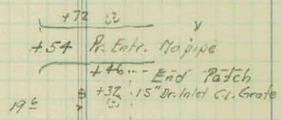 +72
+54 Pr. Entr. No pipe
+46 End Patch
+32 15" Dr. Inlet C.I. Grate
19⁶